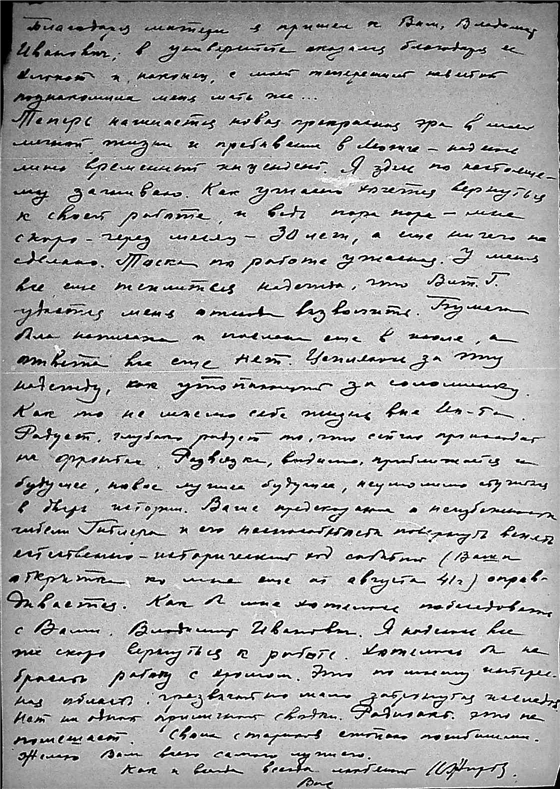 Благодаря матери я пришел к Вам, Владимир
Иванович; в университете оказался благодаря ей
и, наконец, с моей теперешней
познакомила меня мать же...
Теперь начинается новая прекрасная эра в моей
личной жизни и пребывание в – надеюсь
лишь временный инцидент. Я здесь по настояще-
му загниваю. Как ужасно хочется вернуться
к своей работе, и ведь пора пора – мне
скоро – через месяц – 30 лет, а еще ничего не
сделано. Тоска по работе ужасная. У меня
все еще теплится надежда, что Вит. Г.
удастся меня отсюда вызволить. Бумага
была написана и послана еще в июле, а
ответа все еще нет. Цепляюсь за эту
надежду, как утопающий за соломинку.
Как то не мыслю себе жизнь вне Ин-та.
Радует, глубоко радует то, что сейчас происходит
на фронтах. Развязка, видимо, приближается и
будущее, новое лучшее будущее, неумолимо стучится
в дверь истории. Ваше предсказание о неизбежности
гибели Гитлера и его неспособности повернуть вспять
естественно-исторический ход событий (Ваша
открытка ко мне еще от августа 41г) оправ-
дывается. Как бы мне хотелось побеседовать
с Вами, Владимир Иванович. Я надеюсь все
же скоро вернуться к работе. Хотелось бы не
бросать работу с хромом. Это по моему интерес-
ная область, чрезвычайно мало затронутая исследов.
Нет ни одной приличной сводки. Радиоакт. это не
помешает. Своих стариков
Желаю Вам всего самого лучшего.
Как и всегда любящий
Вас